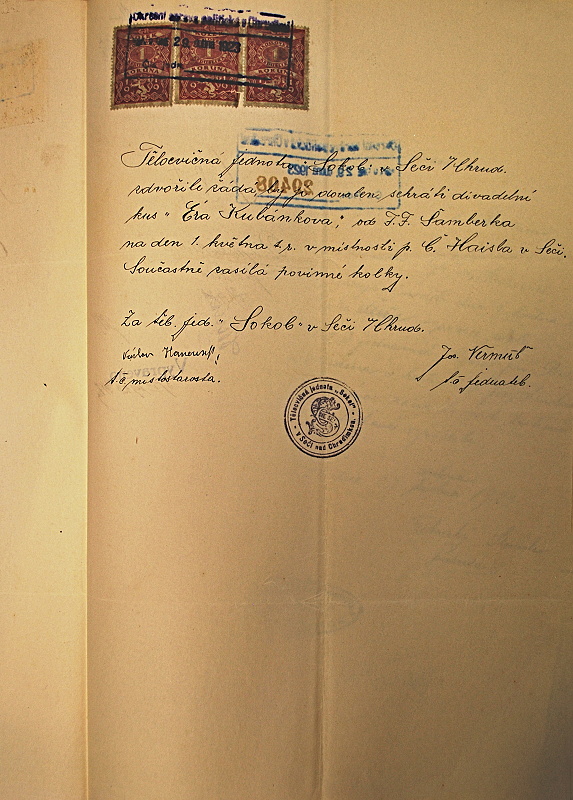 Okresní správa politická v Chrudimi
29. dubna 1923
1 KORUNA
1 KORUNA
1 KORUNA
29. dub 1923
20408
Tělocvičná jednota „Sokol" v Seči /Chrud.
zdvořile žádá by jí dovolen sehráti divadelní
kus „Era Kubánkova," od F. F. Šamberka
na den 1. května t. r. v místnosti p. Č. Haisla v Seči.
Současně zasílá povinné kolky.
Za těl. jed. „Sokol" v Seči /Chrud.
Václav
t. č. místostarosta.
Jos. Vermúth
t. č. jednatel.
Tělocvičná jednota „Sokol"
v Seči nad Chrudimkou